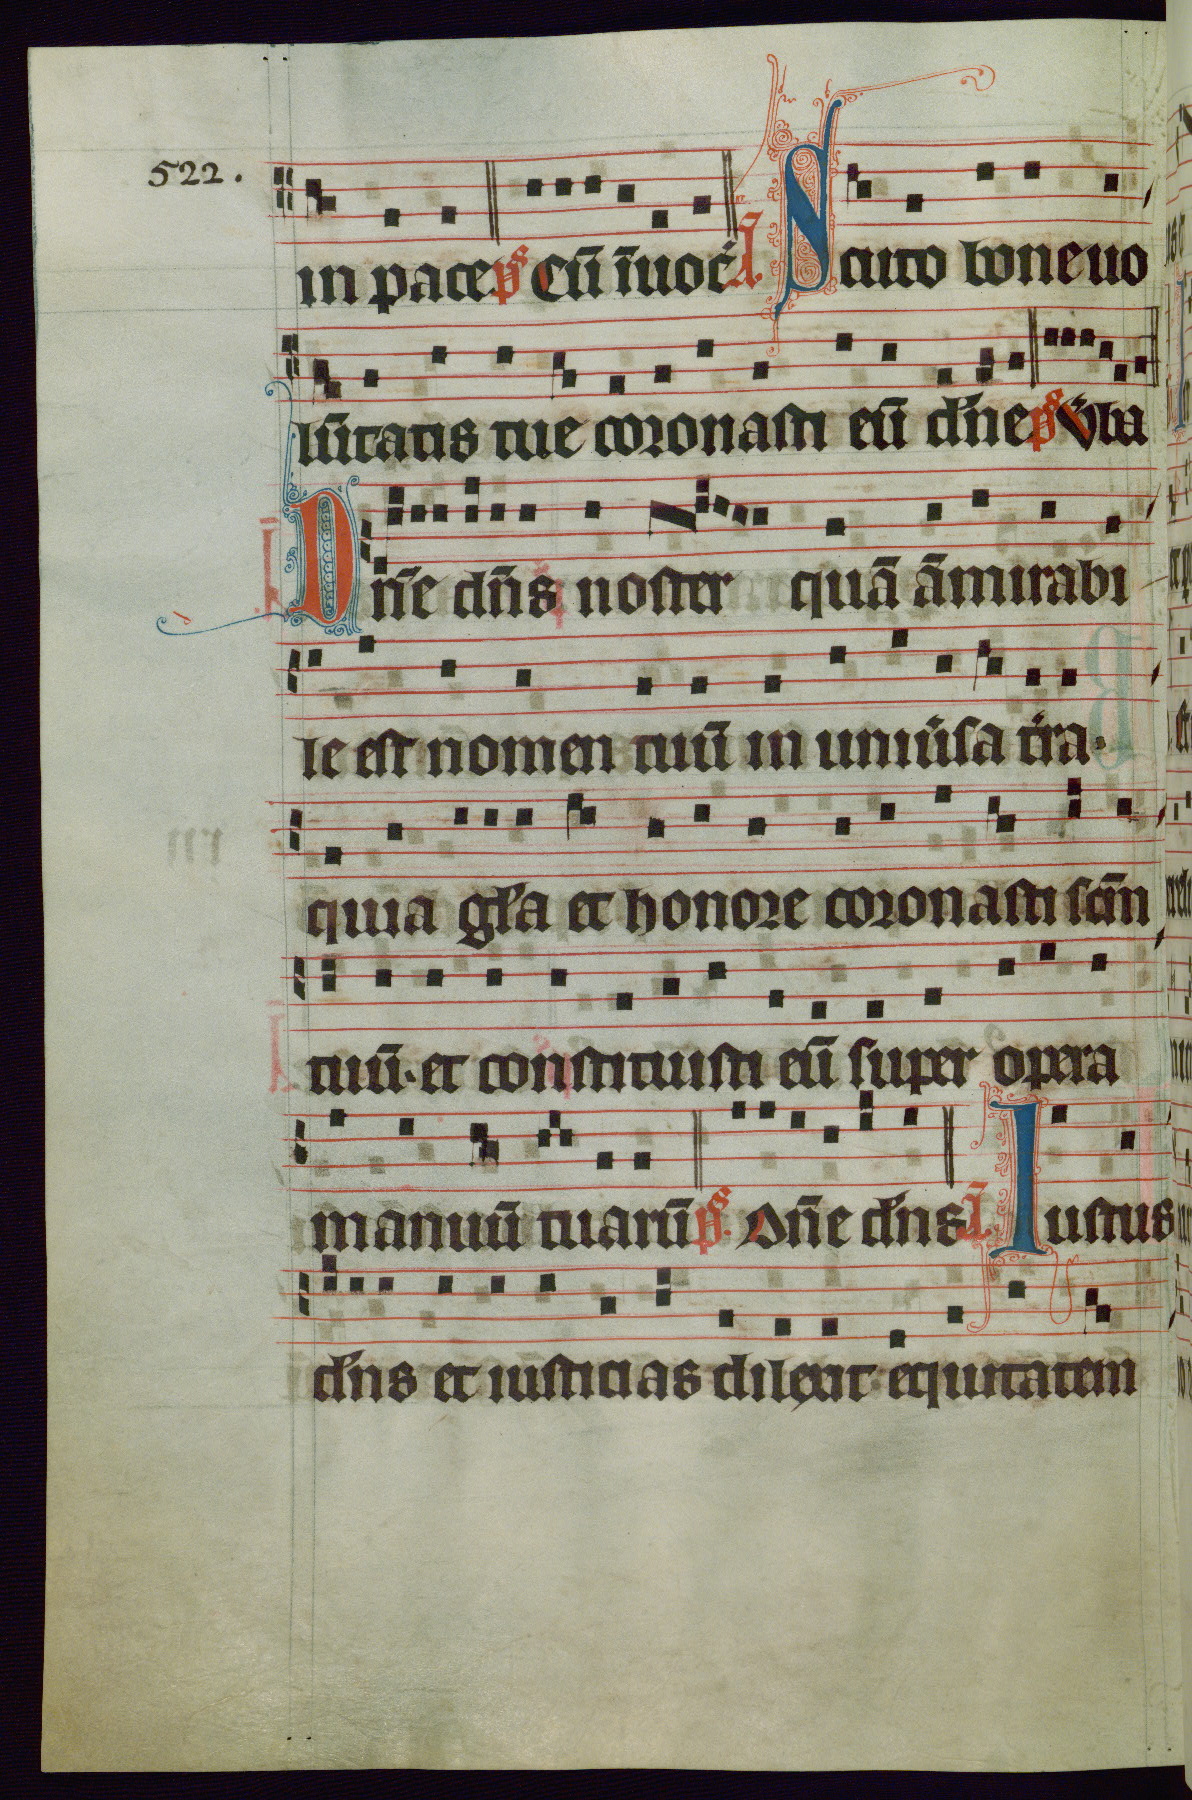 522.
in pace p̄s Cū īuoc̄ A̅ Scuto bone uo
lūtatis tue coronasti eū dn̄e p̄s Ũba
A̅ Dn̄e dn̄s noster quā āmirabi
le est nomen tuū in uniũsa tr̃a·
quia gl̄a et honore coronasti sc̄m
tuū· et constituisti eū super opera
manuū tuarū p̄s. Dn̄e dn̄s A̅ Iustus
dn̄s et iusticias dilexit equitatem